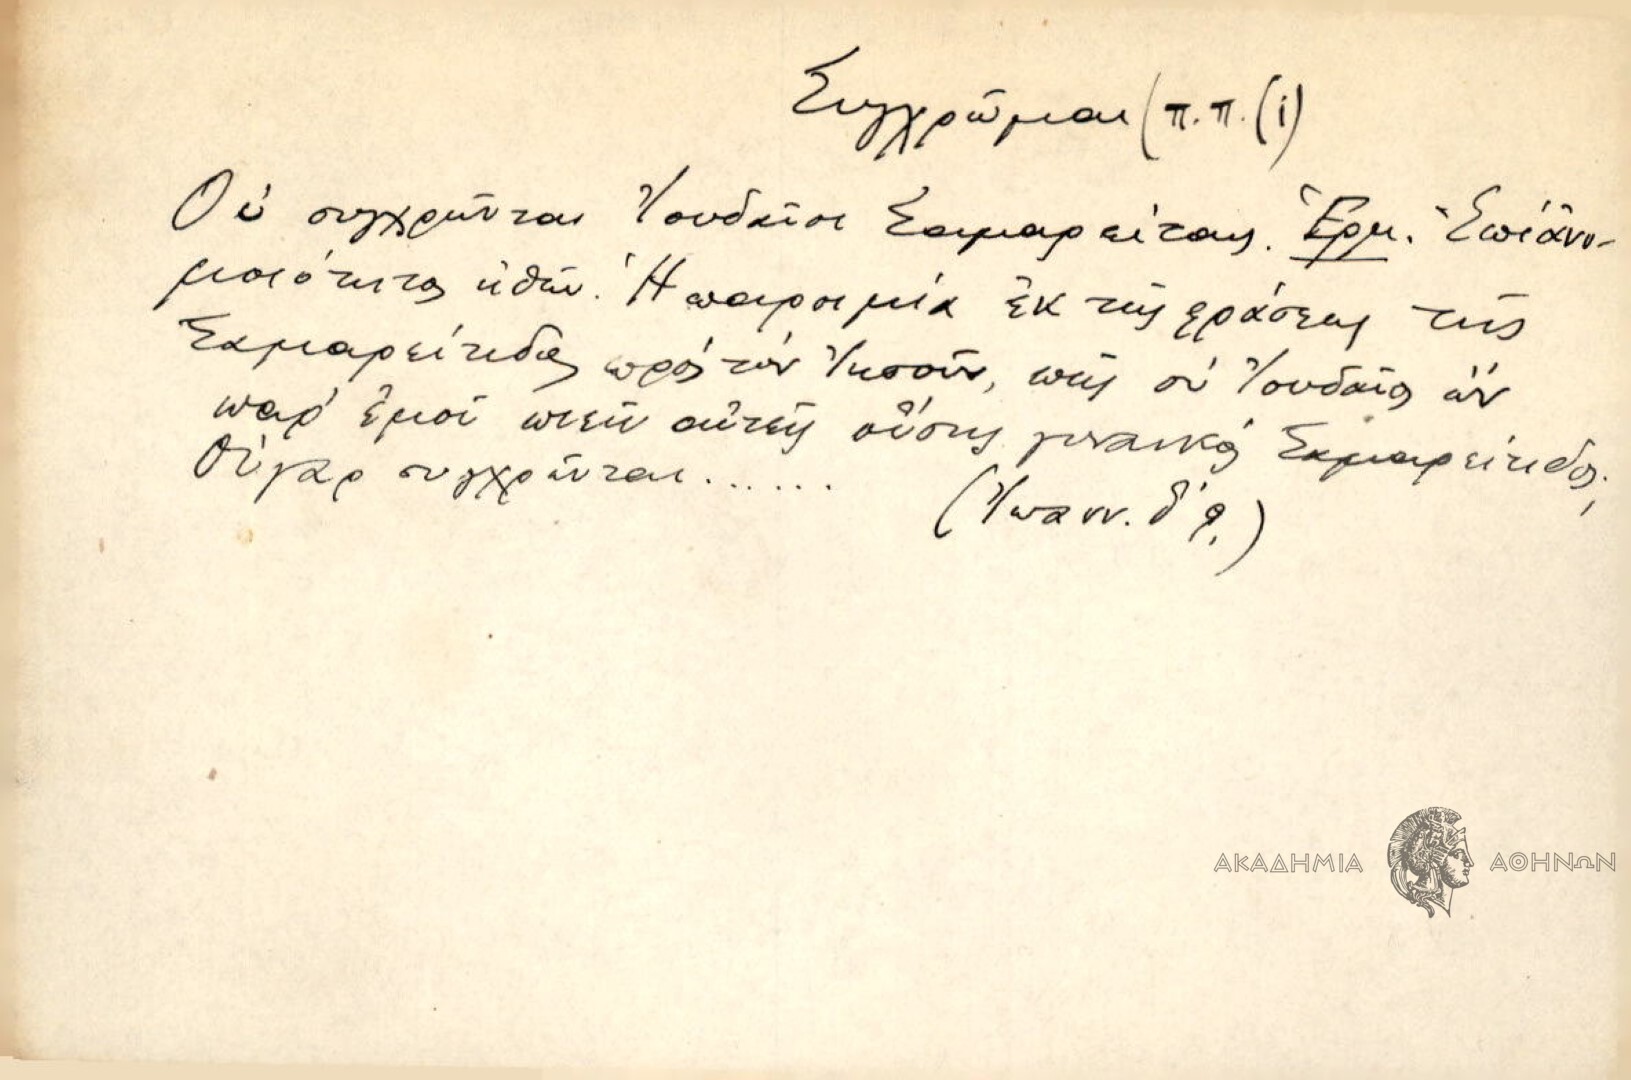 Συγχρῶμαι (π.π. (i)
Οὐ συγχρῶνται Ἰουδαῖοι Σαμαρείταις. Ἑρμ. Ἐπὶ ἀνο-
μοιότητος ἠθῶν. Ἡ παροιμία ἐκ τῆς φράσεως τῆς
Σαμαρείτιδος πρὸς τὸν Ἰησοῦν, πῶς σὺ Ἰουδαῖος ὢν
παρ' ἐμοῦ πιεῖν αἰτεῖς οὔσης γυναικὸς Σαμαρείτιδος;
Οὐ γὰρ συγχρῶνται......
(Ἰωανν. δ' 9.)
ΑΚΑΔΗΜΙΑ ΑΘΗΝΩΝ